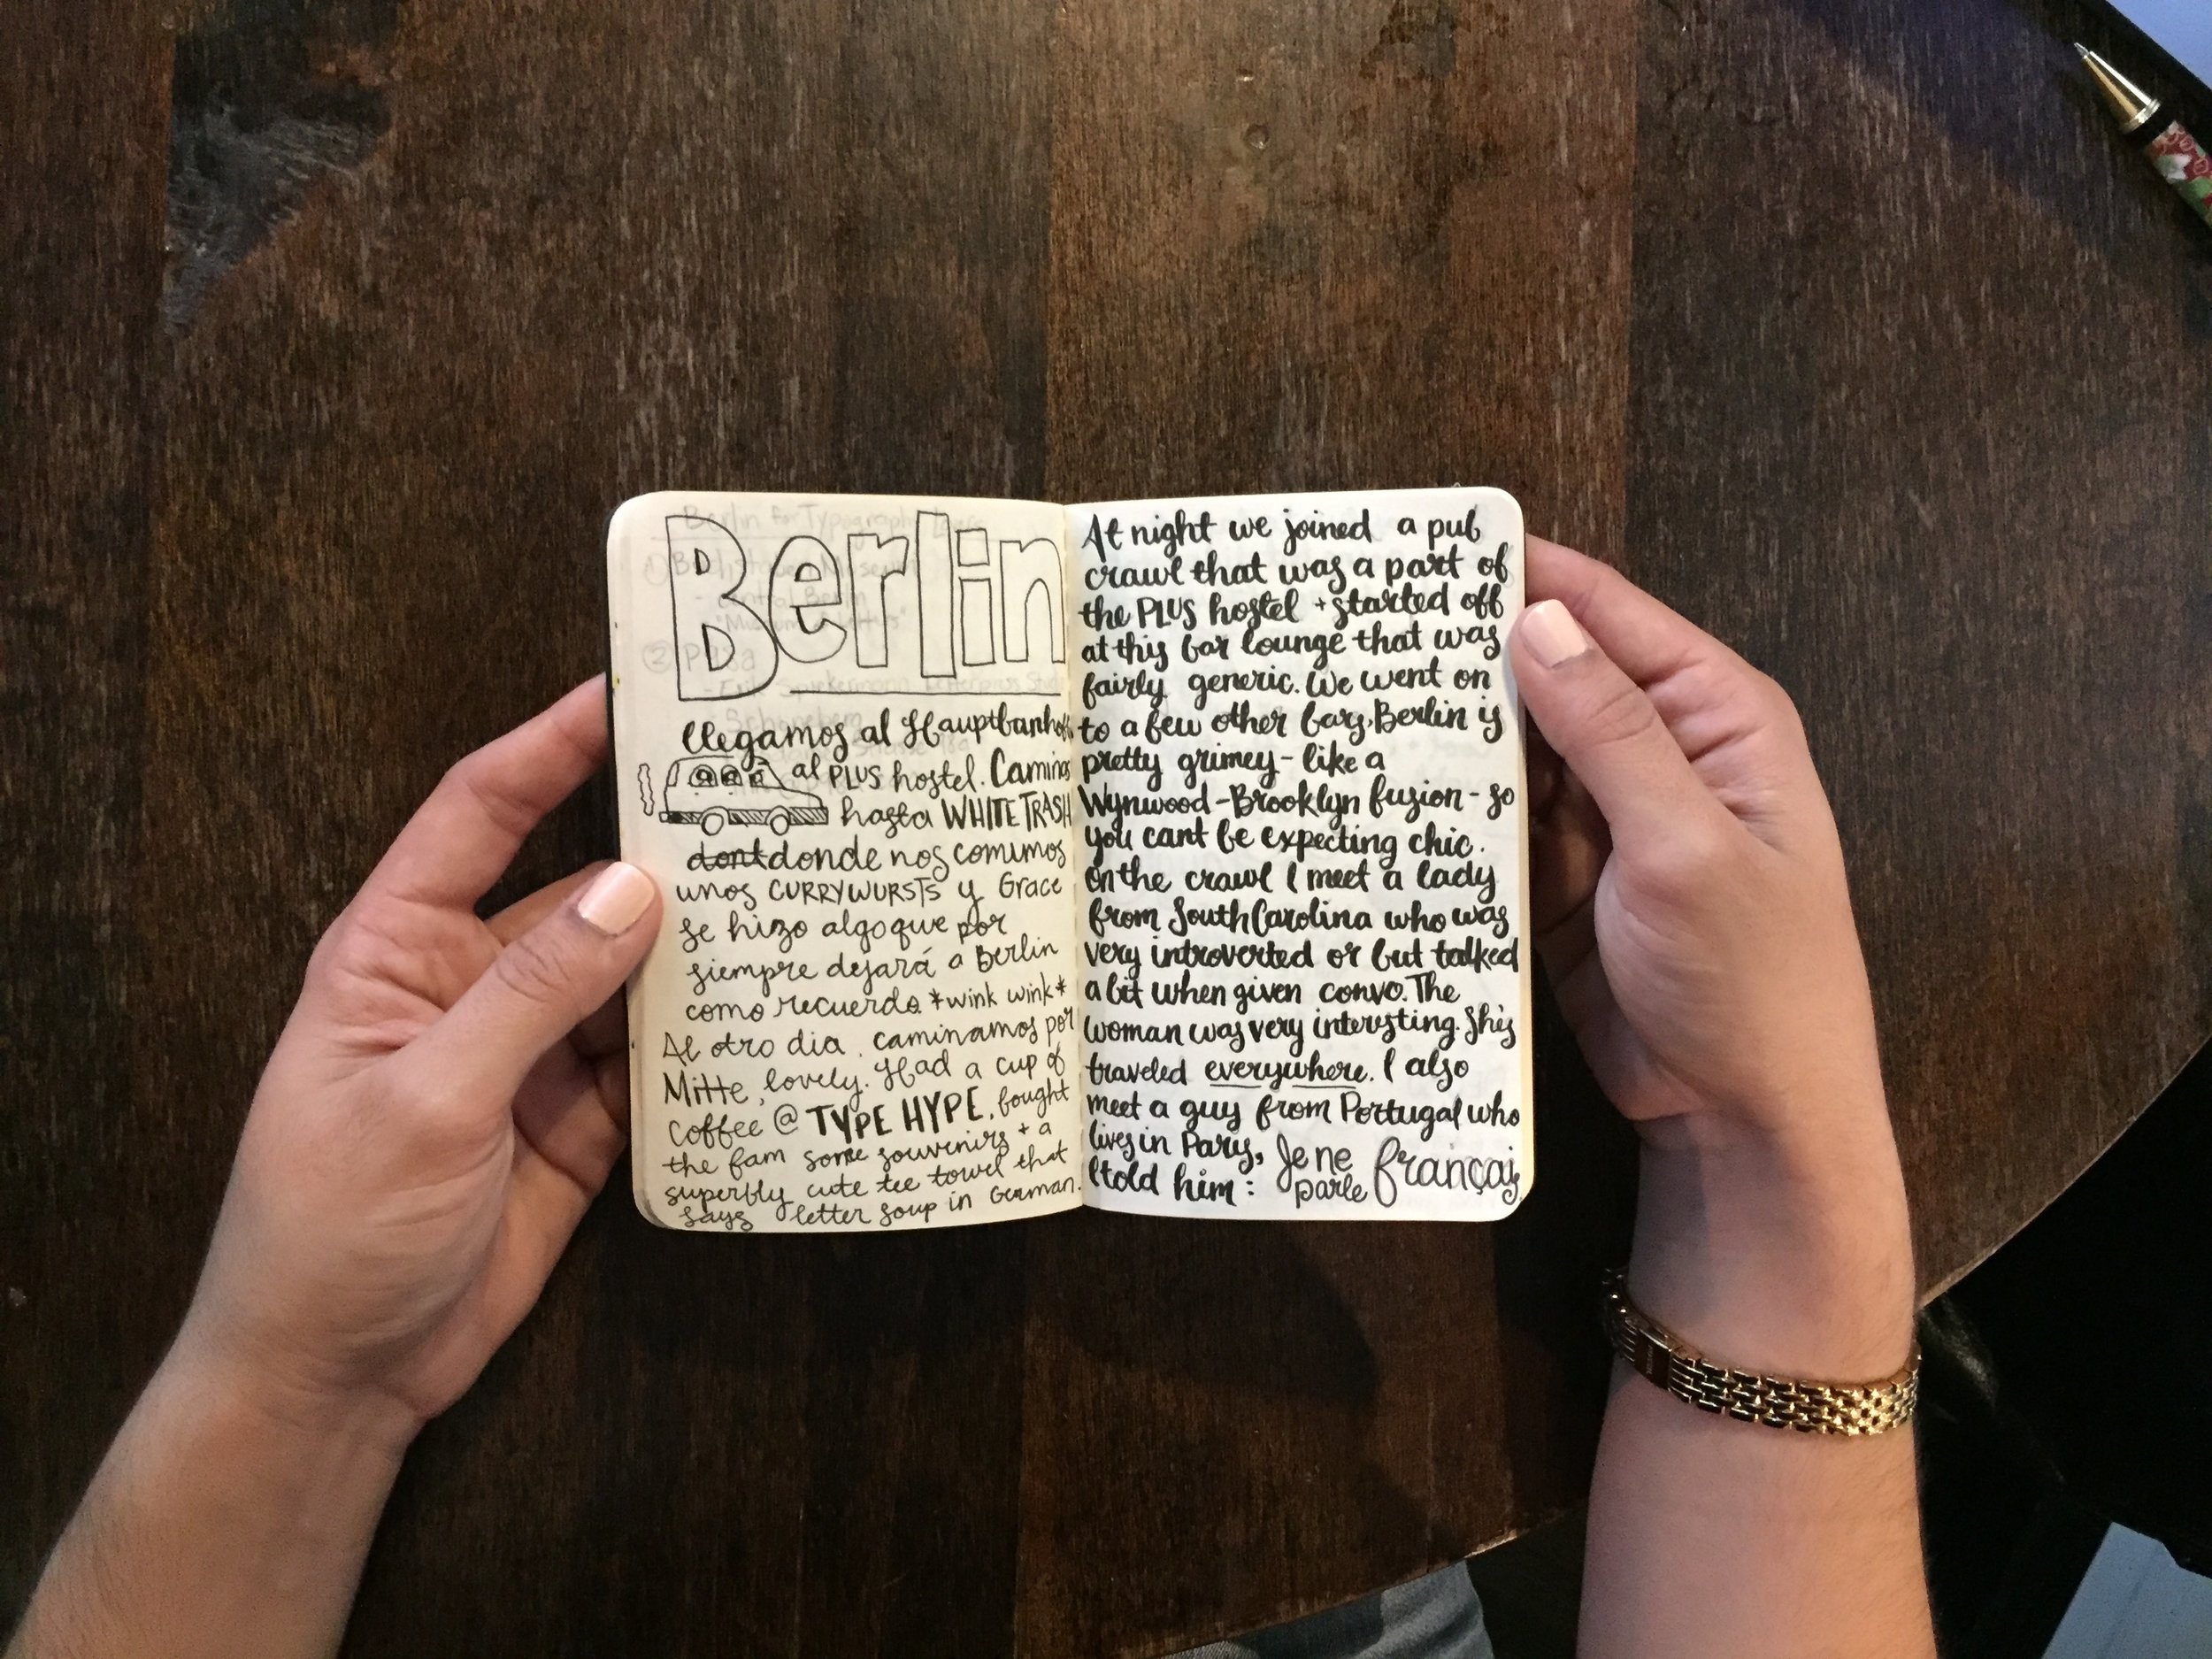 Berlin
llegamos al Hauptbanhof
al PLUS hostel. Caminos
hasta WHITE TRASH
dont donde nos comimos
unos CURRYWURSTS y Grace
se hizo algo que por
siempre dejará a Berlin
como recuerdo *wink wink*
Al otro dia, caminamos por
Mitte, lovely. Had a cup of
coffee @ TYPE HYPE, bought
the fam some souvenirs + a
superfly cute tee towel that
says letter soup in German.
At night we joined a pub
crawl that was a part of
the PLUS hostel + started off
at this bar lounge that was
fairly generic. We went on
to a few other bars. Berlin is
pretty grimey - like a
Wynwood - Brooklyn fusion - so
you cant be expecting chic.
On the crawl I meet a lady
from South Carolina who was
very introverted or but talked
a bit when given convo. The
woman was very interesting. Shes
traveled everywhere. I also
meet a guy from Portugal who
lives in Paris,
I told him: Je ne parle français